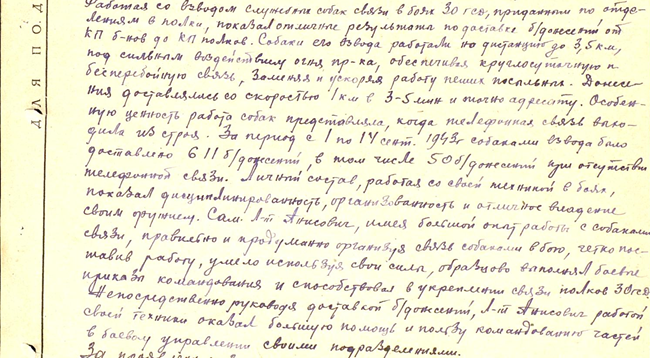 ДЛЯ ПОД
Работая со взводом служебных собак связи в боях 30 гсд, приданным по отде-
лениям в полки, показал отличные результаты по доставке б/донесений от
КП б-нов до КП полков. Собаки его взвода работали на дистанции до 3,5 км,
под сильным воздействием огня пр-ка, обеспечивая круглосуточную и
бесперебойную связь, заменяя и ускоряя работу пеших посыльных. Донесе-
ния доставлялись со скоростью 1 км в 3-5 мин и точно адресату. Особен-
ную ценность работа собак представляла, когда телефонная связь выхо-
дила из строя. За период с 1 по 14 сент. 1943г собаками взвода было
доставлено 611 б/донесений, в том числе 50 б/донесений при отсутствии
телефонной связи. Личный состав, работая со своей техникой в боях,
показал дисциплинированность, организованность и отличное владение
своим оружием. Сам л-т Анисович, имея большой опыт работы с собаками
связи, правильно и продуманно организуя связь собаками в бою, четко пос-
тавив работу, умело используя свои силы, образцово выполнял боевые
приказы командования и способствовал в укреплении связи полков 30 гсд.
Непосредственно руководя доставкой б/донесений, л-т Анисович работой
своей техники оказал большую помощь и пользу командованию частей
в боевом управлении своими подразделениями.
За